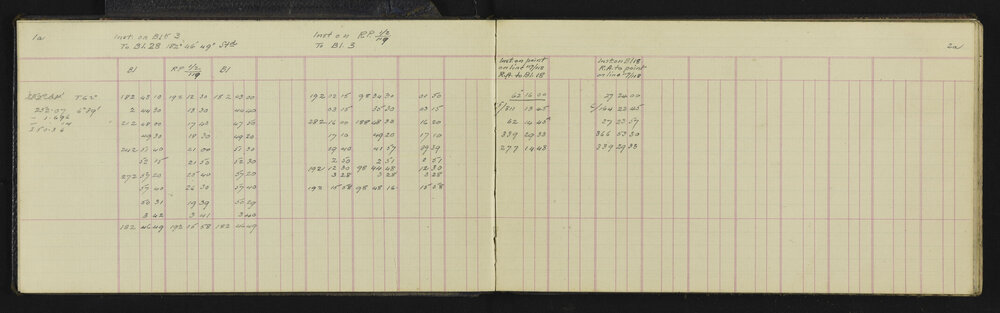 1a
Inst. on Blk 3
To Bl. 28 182° 46' 49"
Bl RP 1/2/119 Bl
T 6
182 43 10 192 12 30 182 43 00
2 44 30 13 30 44 40
212 48 00 17 40 47 50
49 30 18 30 49 20
242 51 40 21 00 51 30
52 15 21 50 52 30
272 57 20 25 40 57 20
57 40 26 30 57 40
50 31 19 39 50 29
3 42 3 41 3 40
182 46 49 192 15 58 182 46 49
Inst on RP 1/2/119
To Bl. 3
192 02 15 98 34 30 01 50
03 15 35 30 03 15
282 16 00 188 48 30 16 20
17 10 49 20 17 10
19 40 41 57 39 39
2 50 2 51 2 51
192 12 30 98 44 48 12 30
3 28 3 28 3 28
192 15 58 98 48 16 15 58
2a
Inst on point
on line 17/118
R.A. to Bl. 18
62 16 00
5/311 13 45
62 14 45
339 29 33
277 14 48
Inst on Bl 18
R.A. to point
on line 17/118
27 24 00
6/164 23 45
27 23 57
366 53 30
339 29 33